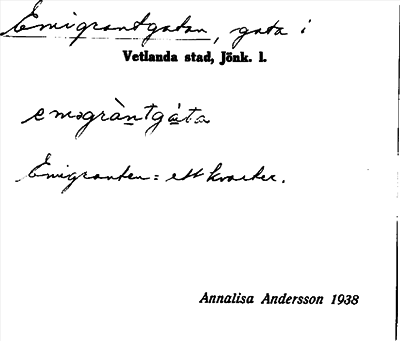 Emigrantgatan, gata i
Vetlanda stad, Jönk. l.
eməgràntgáta
Emigranten = ett kvarter.
Annalisa Andersson 1938